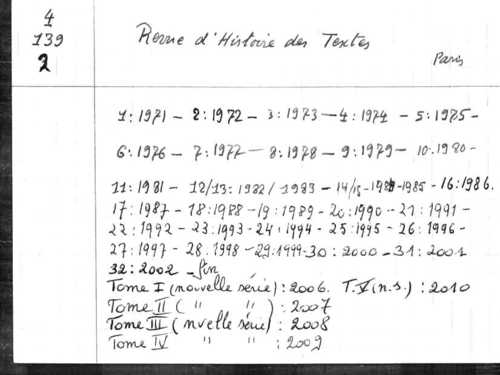 4
139
2
Revue d'Histoire des Textes
Paris
1:1971 - 2:1972 - 3:1973 - 4:1974 - 5:1975 -
6:1976 - 7:1977 - 8:1978 - 9:1979 - 10:1980 -
11:1981 - 12/13:1982/1983 - 14/15-1984-1985 - 16:1986.
17:1987 - 18:1988 - 19:1989 - 20:1990 - 21:1991 -
22:1992 - 23:1993 - 24:1994 - 25:1995 - 26:1996 -
27:1997 - 28.1998 - 29:1999-30:2000-31:2001
32:2002 - fin
Tome I (nouvelle série):2006. T.V(n.s.):2010
Tome II ( " " ) : 2007
Tome III (nvelle série): 2008
Tome IV " " : 2009